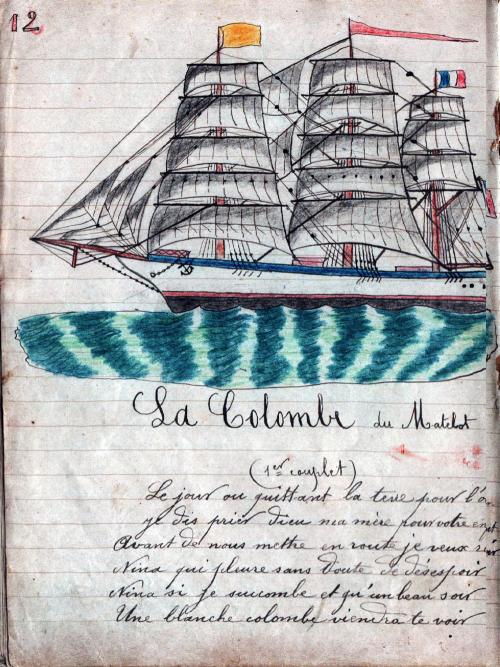 12
La Colombe du Matelot
(1er couplet)
Le jour ou quittant la terre pour l'o
je dis prier Dieu ma mère pour votre en
Avant de nous mettre en route je veux
Nina qui pleure sans doute de désespoir
Nina si je succombe et qu'un beau soir
Une blanche colombe viendra te voir